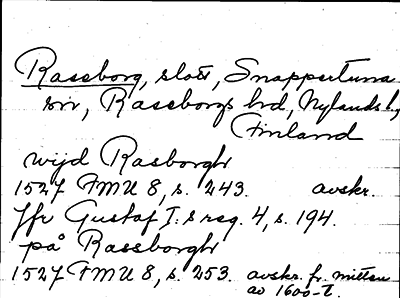 Raseborg, slott, Snappertuna
sn, Raseborgs hd, Nylands l,
Finland
wijd Rasborgh
1527 FMU 8, s. 243. avskr.
Jfr Gustaf I:s reg. 4, s. 194.
på Rassborgh
1527 FMU 8, s. 253. avskr. fr. mitten
av 1600-t.